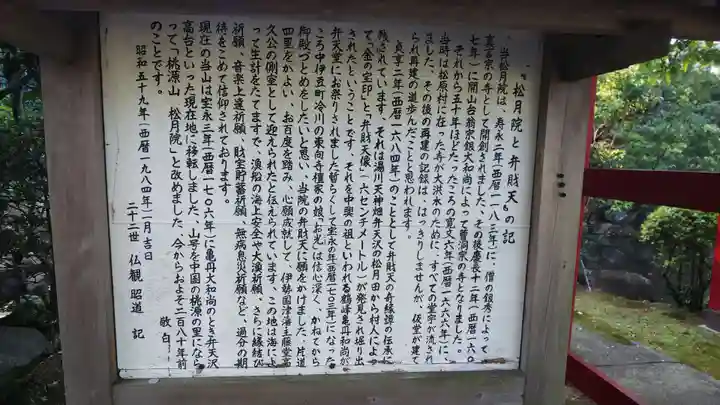 〝松月院と弁財天〟の記
当松月院は、寿永二年(西暦一一八三年)に、僧の銀秀によって
真言宗の寺として開創されました。その後慶長十二年(西暦一六〇
七年)に開山台翁宗銀大和尚によって曹洞宗の寺となりました。
それから五十年ほどたったころの寛文六年(西暦一六六六年)に、
当時は松原村に在った寺が大洪水のために、すべての堂宇が流され
ました。その後の再建の記録は、はっきりしませんが、仮堂が建て
られ再建の道歩んだことと思われます。
貞享二年(西暦一六八四年)のこととして弁財天の奇縁譚の伝承に
残されています。それは湯川天神畑弁天沢の松月田から村人によっ
て「金の宝印」と「弁財天像」(六センチメートル)が発見され堀り出
されたということです。それを中興の祖といわれる鶴峰亀丹和尚が
弁天堂にお祭りされました暫らくして宝永の年(西暦一七〇三年)になった
ころ中伊豆町冷川の東向寺檀家の娘〝お光〟は信心深く、かねてから
御殿づとめをしたいと思い、当院の弁財天に願をかけました。片道
四里をかよい、お百度を踏み、心願成就して、伊勢国津藩主藤堂高
久公の側室として迎えられたと伝えられています。この地は海によ
って生計をたてますで、漁船の海上安全や大漁祈願、さらに縁結び
祈願、音楽上達祈願、財宝貯蓄祈願、無病息災祈願など、過分の期
待をこめて信仰されております。
現在の当山は宝永三年(西暦一七〇六年)に亀丹大和尚のとき弁天沢
高台といった現在地に移転しました。山号を中国の桃源の里になら
って「桃源山 松月院」と改めました。今からおよそ二百八十年前
のことです。
敬白
昭和五十九年(西暦一九八四年)一月吉日
二十二世 仏観昭道 記